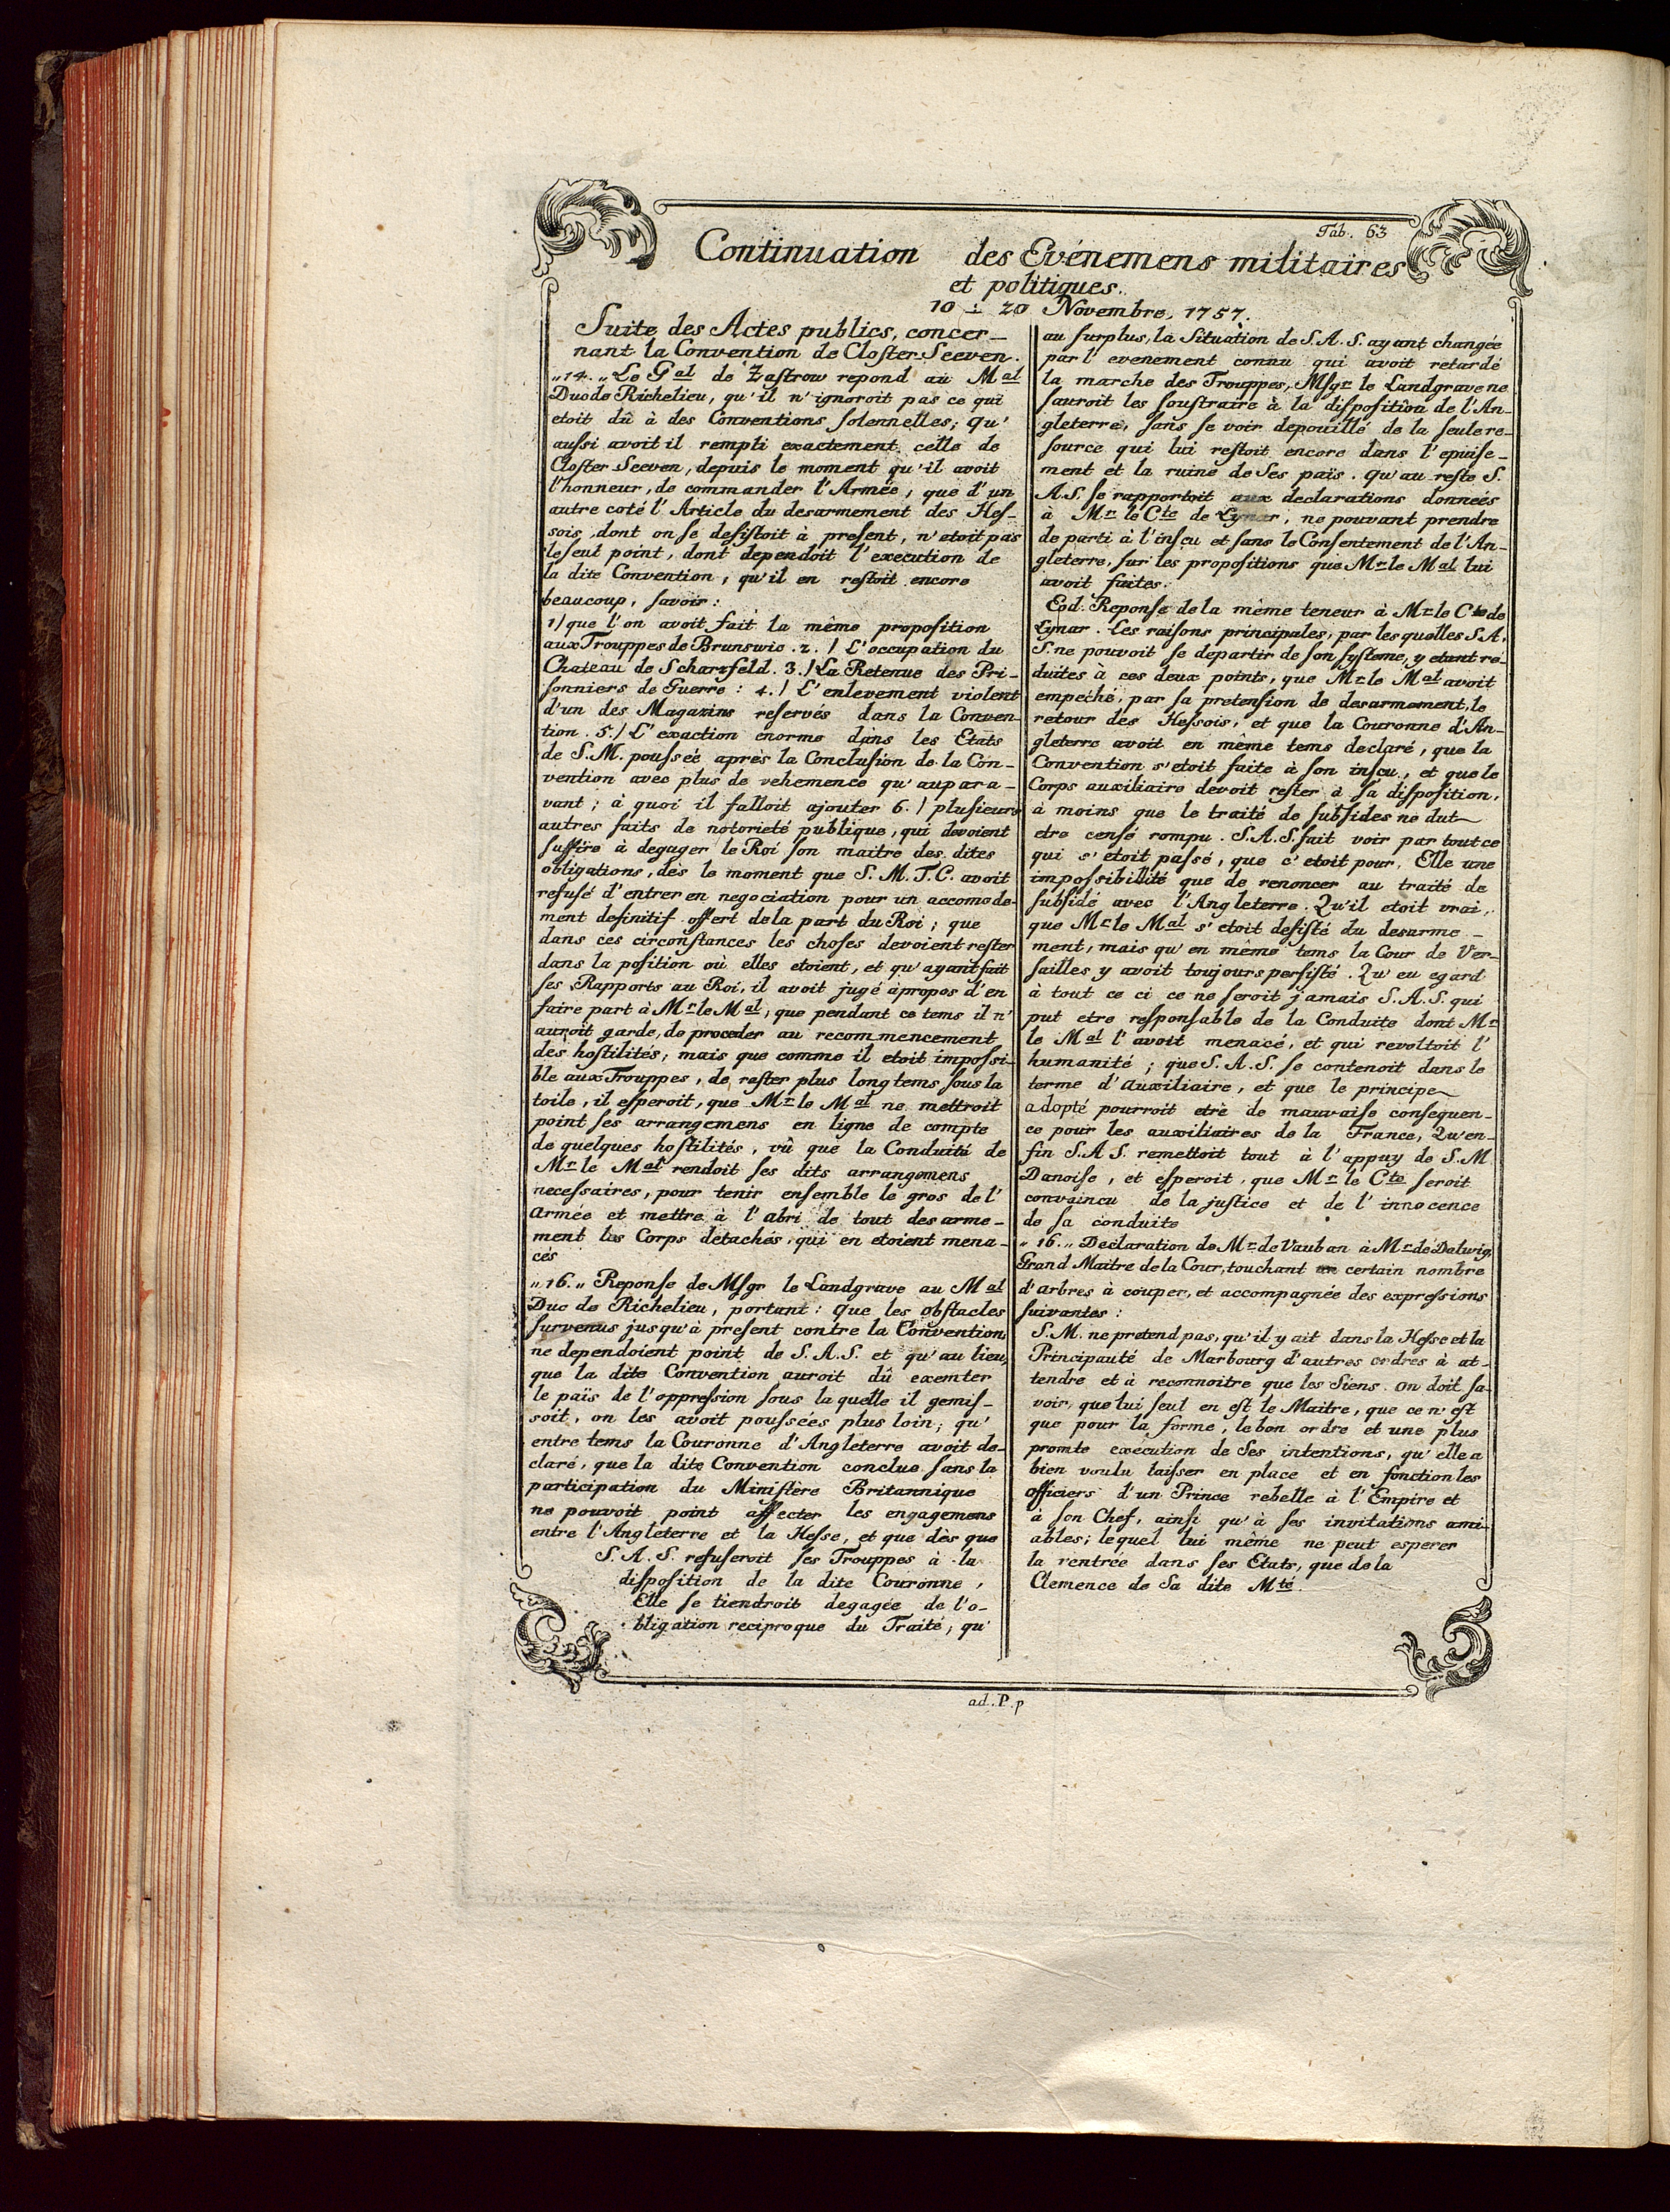 Tab. 63
Continuation des Evénemens militaires
et politiques.
10 ÷ 20 Novembre, 1757.
Suite des Actes publics, concer-
nant la Convention de Closter Seeven.
„14.„ Le Gal de Zastrow repond au Mal
Duc de Richelieu, qu'il n'ignoroit pas ce qui
etoit dû à des Conventions solennelles; qu'
aussi avoit il rempli exactement celle de
Closter Seeven, depuis le moment qu'il avoit
l'honneur, de commander l'Armée; que d'un
autre coté l'Article du desarmement des Hes-
sois, dont on se desistoit à present, n'etoit pas
le seul point, dont dependoit l'execution de
la dite Convention; qu'il en restoit encore
beaucoup, savoir:
1) que l'on avoit fait la même proposition
aux Trouppes de Brunswic. 2.) L'occupation du
Chateau de Scharzfeld. 3.) La Retenue des Pri-
sonniers de Guerre: 4.) L'enlevement violent
d'un des Magazins reservés dans la Conven-
tion. 5.) L'exaction enorme dans les Etats
de S.M. poussée après la Conclusion de la Con-
vention avec plus de vehemence qu'aupara-
vant; à quoi il falloit ajouter 6.) plusieurs
autres faits de notorieté publique, qui devoient
suffire à degager le Roi son maitre des dites
obligations, dès le moment que S. M. T. C. avoit
refusé d'entrer en negociation pour un accomode-
ment definitif offert de la part du Roi; que
dans ces circonstances les choses devoient rester
dans la position où elles etoient, et qu'ayant fait
ses Rapports au Roi, il avoit jugé àpropos d'en
faire part à Mr le Mal, que pendant ce tems il n'
auroit garde, de proceder au recommencement
des hostilités; mais que comme il etoit impossi-
ble aux Trouppes, de rester plus long tems sous la
toile, il esperoit, que Mr le Mal ne mettroit
point ses arrangemens en ligne de compte
de quelques hostilités, vû que la Conduite de
Mr le Mal rendoit ses dits arrangemens
necessaires, pour tenir ensemble le gros de l'
Armée et mettre à l'abri de tout desarme-
ment les Corps détachés, qui en etoient mena-
cés
„16.„ Reponse de Msgr le Landgrave au Mal
Duc de Richelieu, portant: que les obstacles
survenus jusqu'à present contre la Convention
ne dependoient point de S. A. S. et qu'au lieu,
que la dite Convention auroit dû exemter
le païs de l'oppression sous la quelle il gemis-
soit, on les avoit poussées plus loin; qu'
entre tems la Couronne d'Angleterre avoit de-
claré, que la dite Convention conclue sans la
participation du Ministère Britannique
ne pouvoit point affecter les engagemens
entre l'Angleterre et la Hesse, et que dès que
S. A. S. refuseroit ses Trouppes à la
disposition de la dite Couronne,
Elle se tiendroit degagée de l'o-
bligation reciproque du Traité; qu'
au surplus, la Situation de S. A. S. ayant changée
par l'evenement connu qui avoit retardé
la marche des Trouppes, Msgr le Landgrave ne
sauroit les soustraire à la disposition de l'An-
gleterre, sans se voir depouillé de la seule re-
source qui lui restoit encore dans l'epuise-
ment et la ruine de Ses païs. Qu'au reste S.
A.S. se rapportoit aux declarations données
à Mr le Cte de Lynar, ne pouvant prendre
de parti à l'insçu et sans le Consentement de l'An-
gleterre, sur les propositions que Mr le Mal lui
avoit faites.
Eod. Reponse de la même teneur à Mr le Cte de
Lynar. Les raisons principales, par les quelles S.A.
S. ne pouvoit se departir de son systeme, y etant ré-
duites à ces deux points, que Mr le Mal avoit
empeché, par sa pretension de desarmement, le
retour des Hessois, et que la Couronne d'An-
gleterre avoit en même tems declaré, que la
Convention s'etoit faite à son insçu, et que le
Corps auxiliaire devoit rester à sa disposition,
à moins que le traité de subsides ne dut
etre censé rompu. S. A. S. fait voir par tout ce
qui s'etoit passé, que c'etoit pour Elle une
impossibilité que de renoncer au traité de
subside avec l'Angleterre. Qu'il etoit vrai,
que Mr le Mal s'etoit desisté du desarme-
ment, mais qu'en même tems la Cour de Ver-
sailles y avoit toujours persisté. Qu'eu egard
à tout ce ci ce ne seroit jamais S. A. S. qui
put etre responsable de la Conduite dont Mr
le Mal l'avoit menacé, et qui revoltoit l'
humanité; que S. A. S. se contenoit dans le
terme d'auxiliaire, et que le principe
adopté pourroit etrè de mauvaise consequen-
ce pour les auxiliaires de la France, Qu'en-
fin S. A S. remettoit tout à l'appuy de S. M
Danoise, et esperoit, que Mr le Cte seroit
convaincu de la justice et de l'innocence
de sa conduite
„16.„ Declaration de Mr de Vauban à Mr de Dalwig,
Grand Maitre de la Cour, touchant un certain nombre
d'arbres à couper, et accompagnée des expressions
suivantes:
S. M. ne pretend pas, qu'il y ait dans la Hesse et la
Principauté de Marbourg d'autres ordres à at-
tendre et à reconnoitre que les Siens. On doit sa-
voir, que lui seul en est le Maitre, que ce n'est
que pour la forme, le bon ordre et une plus
promte execution de Ses intentions, qu'elle a
bien voulu laisser en place et en fonction les
officiers d'un Prince rebelle à l'Empire et
à son Chef, ainsi qu'à ses invitations ami-
ables; lequel lui même ne peut esperer
la rentrée dans ses Etats, que de la
Clemence de Sa dite Mté.
ad. P. p